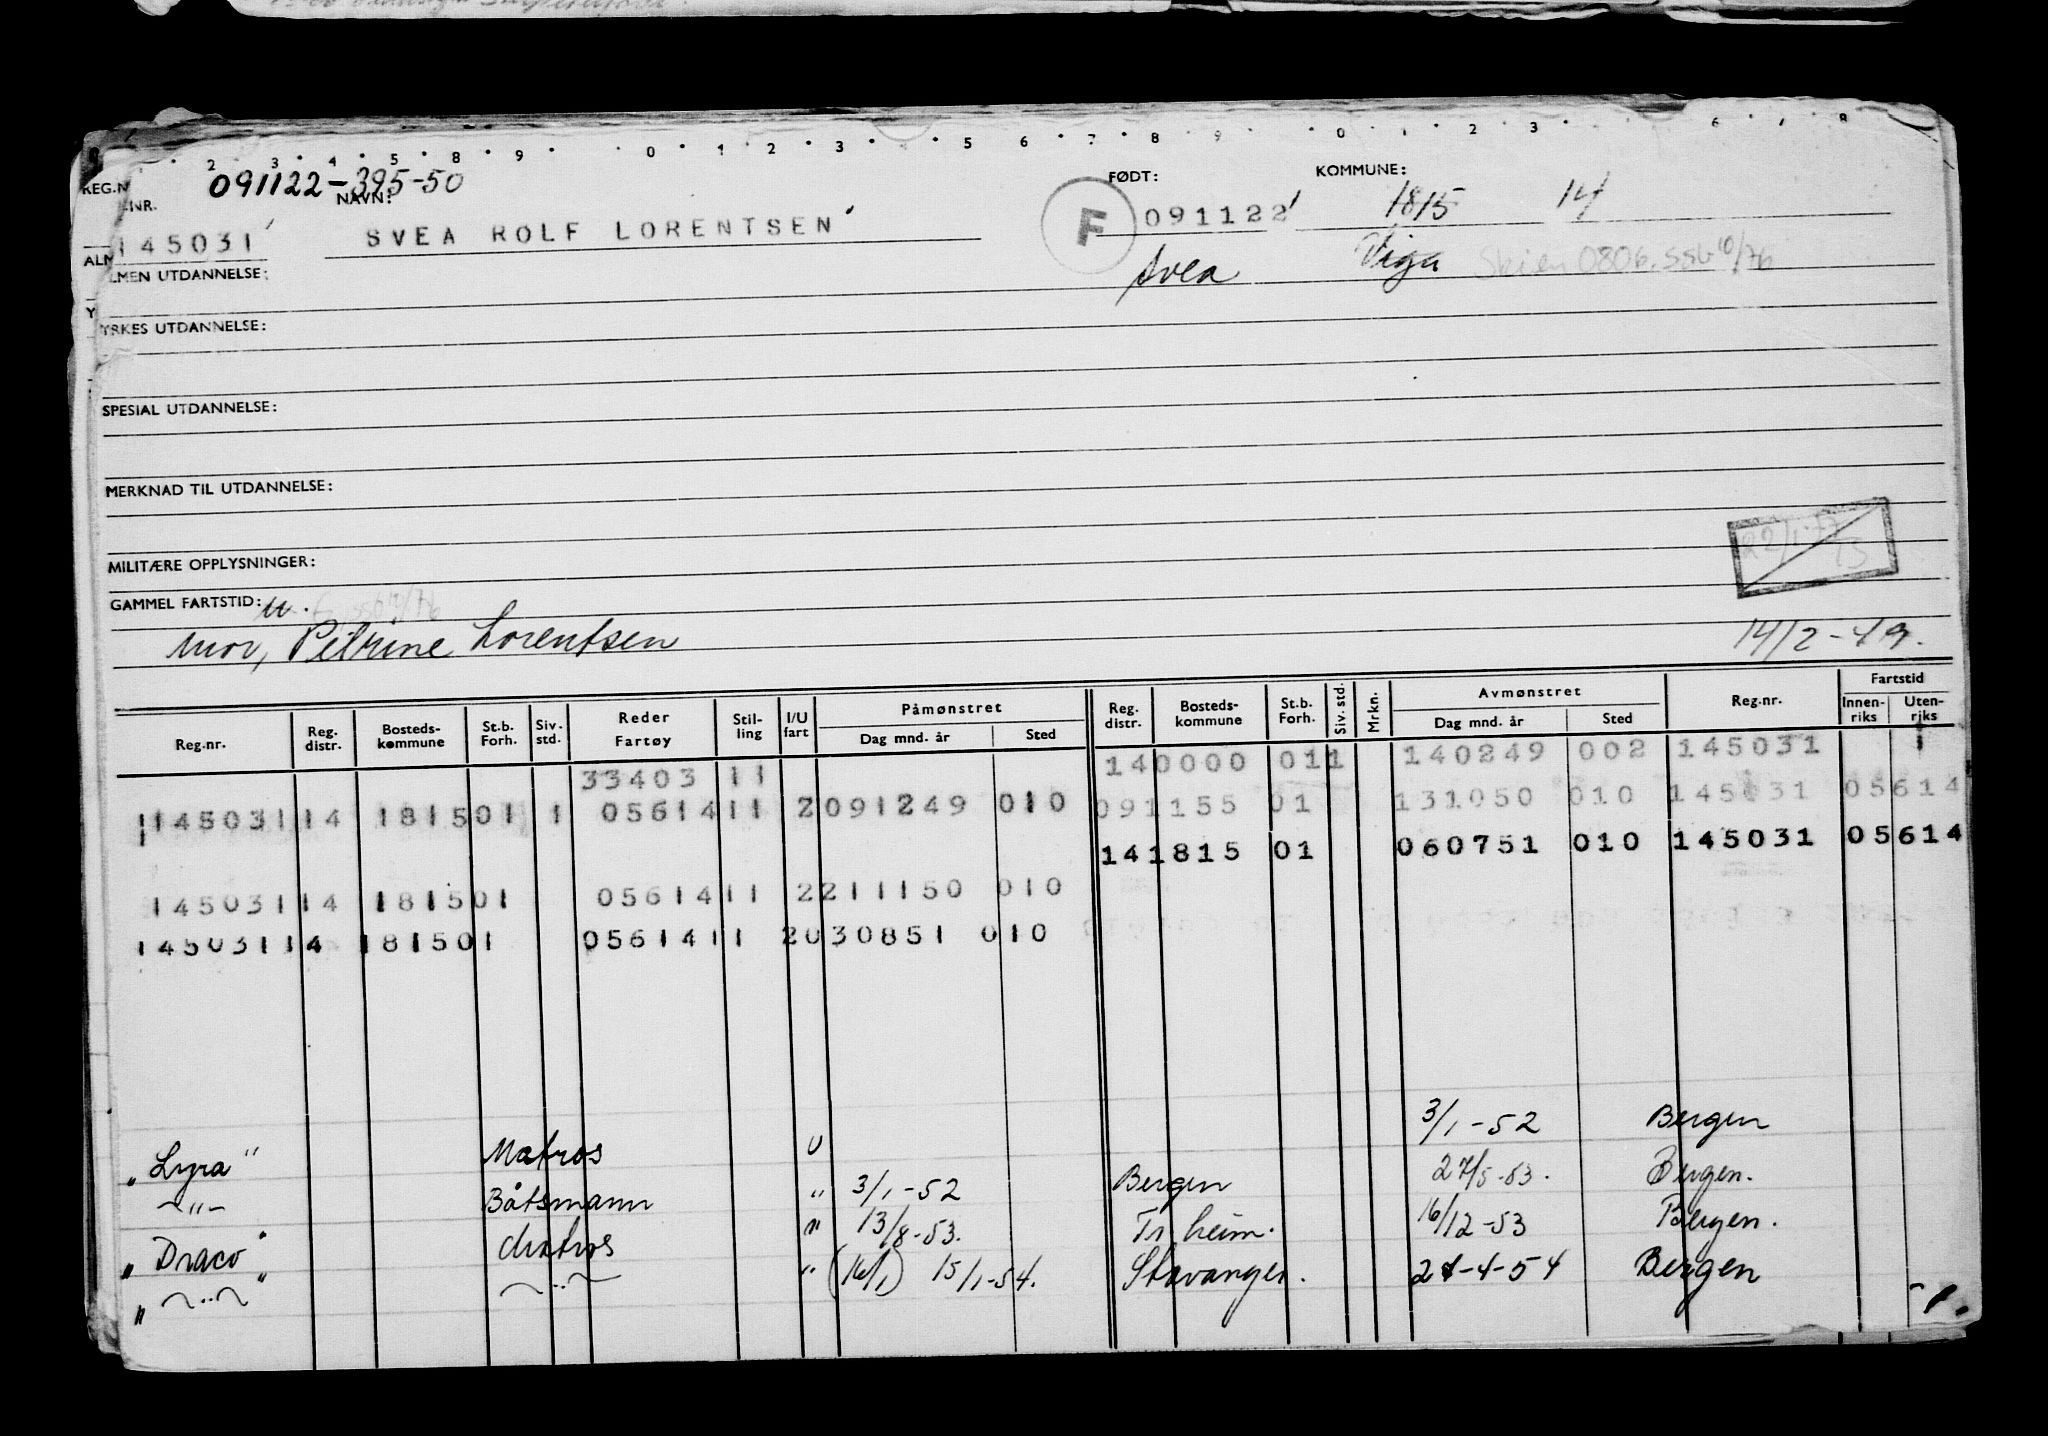 2 · 3 · 4 · 5 · 8 · 9 · · 0 · 1 · 2 · 3 · · 5 6 · 7 · 8 · 9 · · 0 · 1 · 2 · 3 · 6 · 8
REG.N 091122-395-50 NAVN: FØDT: KOMMUNE:
NR. 145031 SVEA ROLF LORENTSEN F 091122 1815 14
ALMEN UTDANNELSE: Svea Viga Skien 0806. ssb 10/76
YRKES UTDANNELSE:
SPESIAL UTDANNELSE:
MERKNAD TIL UTDANNELSE:
MILITÆRE OPPLYSNINGER:
GAMMEL FARTSTID: u.
Mor, Petrine Lorentsen 14/2-49.
Reg.nr. Reg. distr. Bosteds-kommune St.b. Forh. Siv. std. Reder Fartøy Stil-ling I/U fart Påmønstret Dag mnd. år Sted Reg. distr. Bosteds-kommune St.b. Forh. Siv. std. Mrkn. Avmønstret Dag mnd. år Sted Reg.nr. Fartstid Innen-riks Uten-riks
33403 11 140000 011 140249 002 145031 1
145031 14 1815 01 1 05614 11 2 091249 010 091155 01 131050 010 145031 05614
141815 01 060751 010 145031 05614
145031 14 1815 01 05614 11 2 211150 010
145031 14 1815 01 05614 11 2 030851 010
„Lyra" Matros U 3/1-52 Bergen
—"— Båtsmann " 3/1-52 Bergen 27/5-53. Bergen.
„Draco" Matros " 13/8-53. Tr.heim. 16/12-53 Bergen.
„ —"— " —"— " (16/1) 15/1-54. Stavanger. 24-4-54 Bergen
-1.